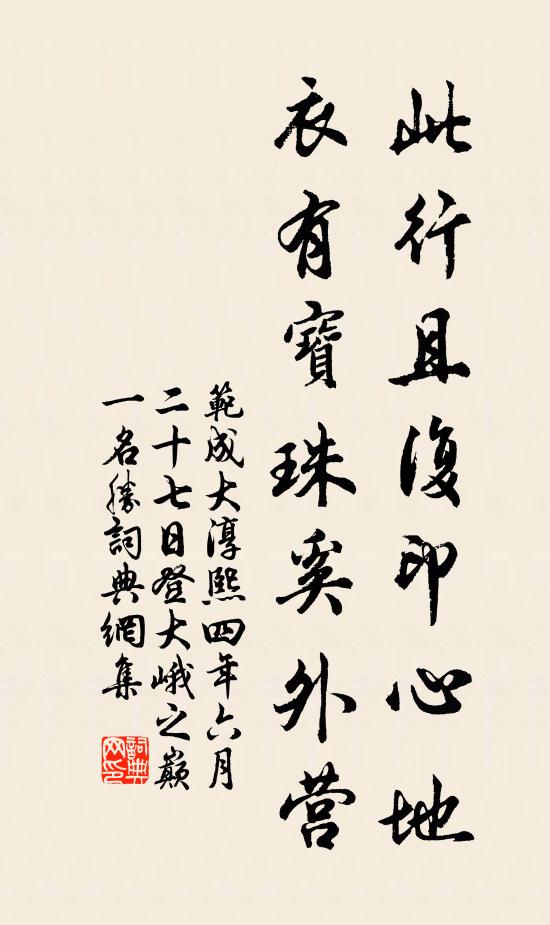 此行且復印心地
衣有寶珠奚外营
範成大淳熙四年六月
二十七日登大峨之巔
一名勝詞典網集
詞典
网印